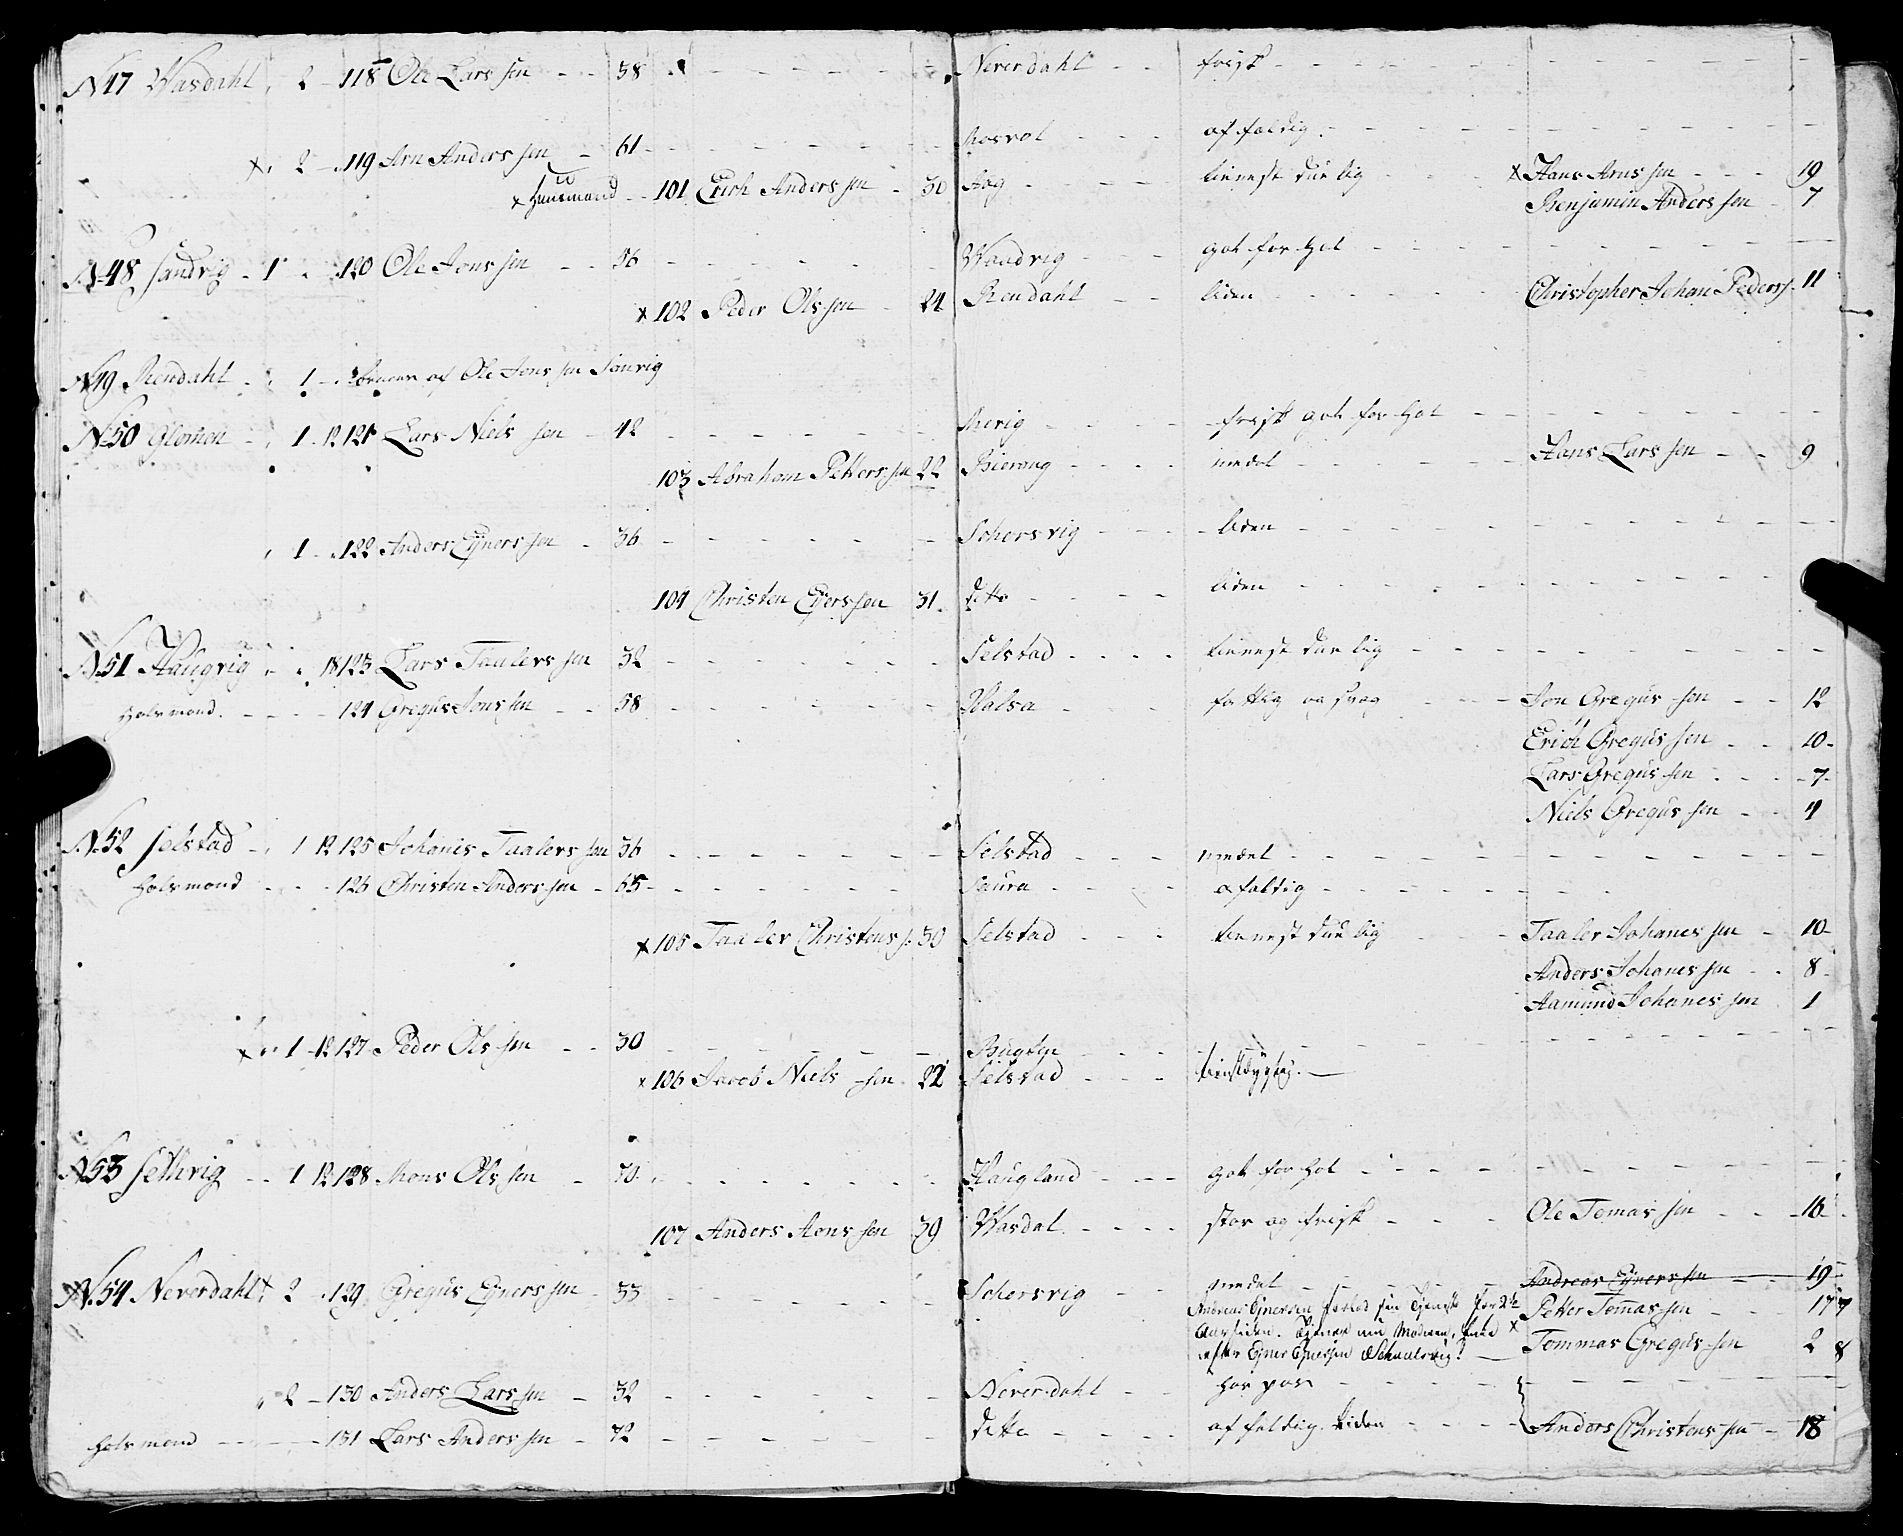 N 47 Wasdahl 2 118 Ole Larssen 38 Neverdahl frisk
x 2 119 Arn Anderssen 61 affaldig
x huusmand 101 Erich Anderssen 30 Aag tienest due lig x Hans Arnssen 19
Benjamin Anderssen 7
N 48 Sandvig 1 120 Ole Jonssen 56 Waadvig got for hol
x 102 Peder Olssen 24 Rendahl liden Christopher Johan Peders. 11
N 49 Rendahl 1 bruges af Ole Jonssen Sanvig
N 50 Glomen 1 12 121 Lars Nielssen 42 Mevig frisk got for hol
103 Abraham Petterssen 22 Bierang medel Hans Larssen 9
1 122 Anders Eÿnerssen 36 Schersvig liden
104 Christen Eÿerssen 31 ditto liden
N 51 Haugvig 18 123 Lars Taalerssen 32 Selstad tienest due lig
holsmand 124 Gregus Jonssen 58 Halsa fattig og svag Jon Gregussen 12
Erich Gregussen 10
Lars Gregussen 7
Niels Gregussen 4
N 52 Selstad 1 12 125 Johanes Taalerssen 36 Selstad medel
holsmand 126 Christen Anderssen 65 Saura afaldig
x 105 Taaler Christens s. 30 Selstad tienest due lig Taaler Johanessen 10
Anders Johanessen 8
Aamund Johanessen 1
x 1 12 127 Peder Olssen 30 Bugten
x 106 Jacob Nielssen 22 Selstad
N 53 Setvig 1 12 128 Mons Olssen 70 Haugland got for hol
107 Anders Monssen 39 Wasdal stor og frisk Ole Tomassen 16
N 54 Neverdahl x 2 129 Gregus Eÿnerssen 33 Schersvig medel Andreas Eÿnerssen 19
Andreas Ejnersen sin for 2½ Petter Tommassen 17 7
Aar siden. Tiener nu x Tommas Gregussen 2 8
efter Ejner Ejnersen
2 130 Anders Larssen 32 Neverdahl
holsmand 131 Lars Anderssen 72 ditto affeldig liden Anders Christenssen 18